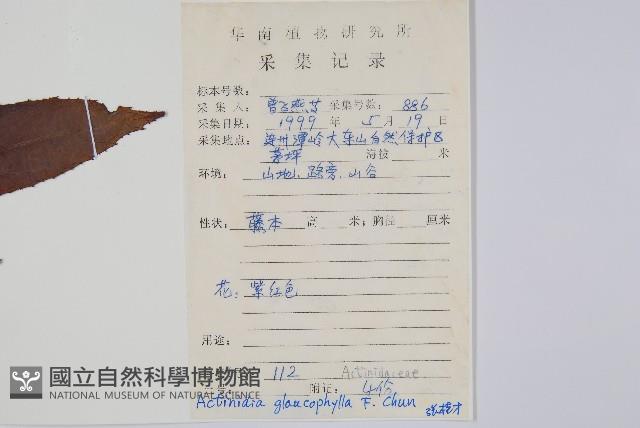 华南植物研究所
采集记录
标本号数：
采集人： 曾飞燕等 采集号数： 886
采集日期： 1999 年 5 月 19 日
采集地点： 连州潭岭大东山自然保护区
茅坪 海拔 米
环境： 山地、路旁、山谷
性状： 藤本 高 米；胸径 厘米
花： 紫红色
用途：
112 Actinidaceae
附记： 4份
國立自然科學博物館
NATIONAL MUSEUM OF NATURAL SCIENCE
Actinidia glaucophylla F. Chun